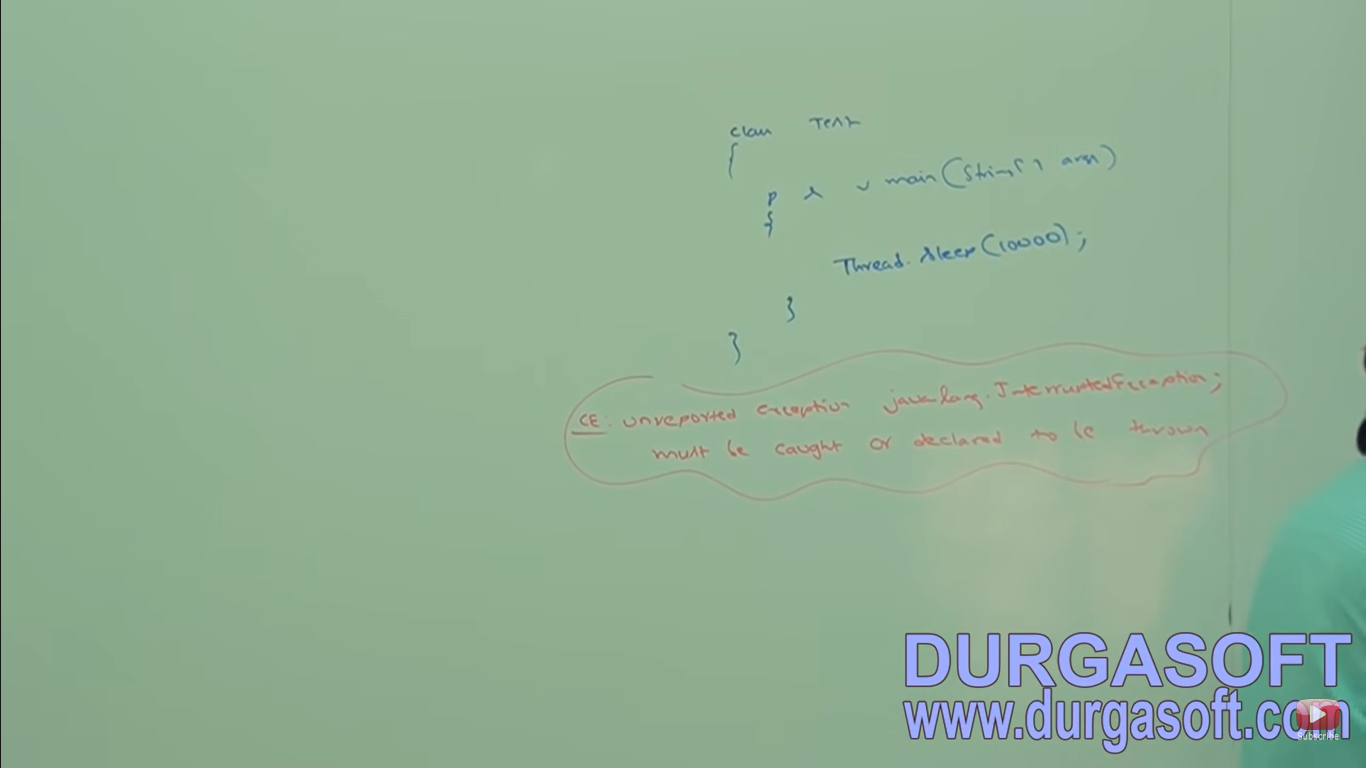 class Test
{
p s v main(String[] args)
{
Thread.sleep(10000);
}
}
CE: unreported exception java.lang.InterruptedException;
must be caught or declared to be thrown
DURGASOFT
www.durgasoft.com
Subscribe